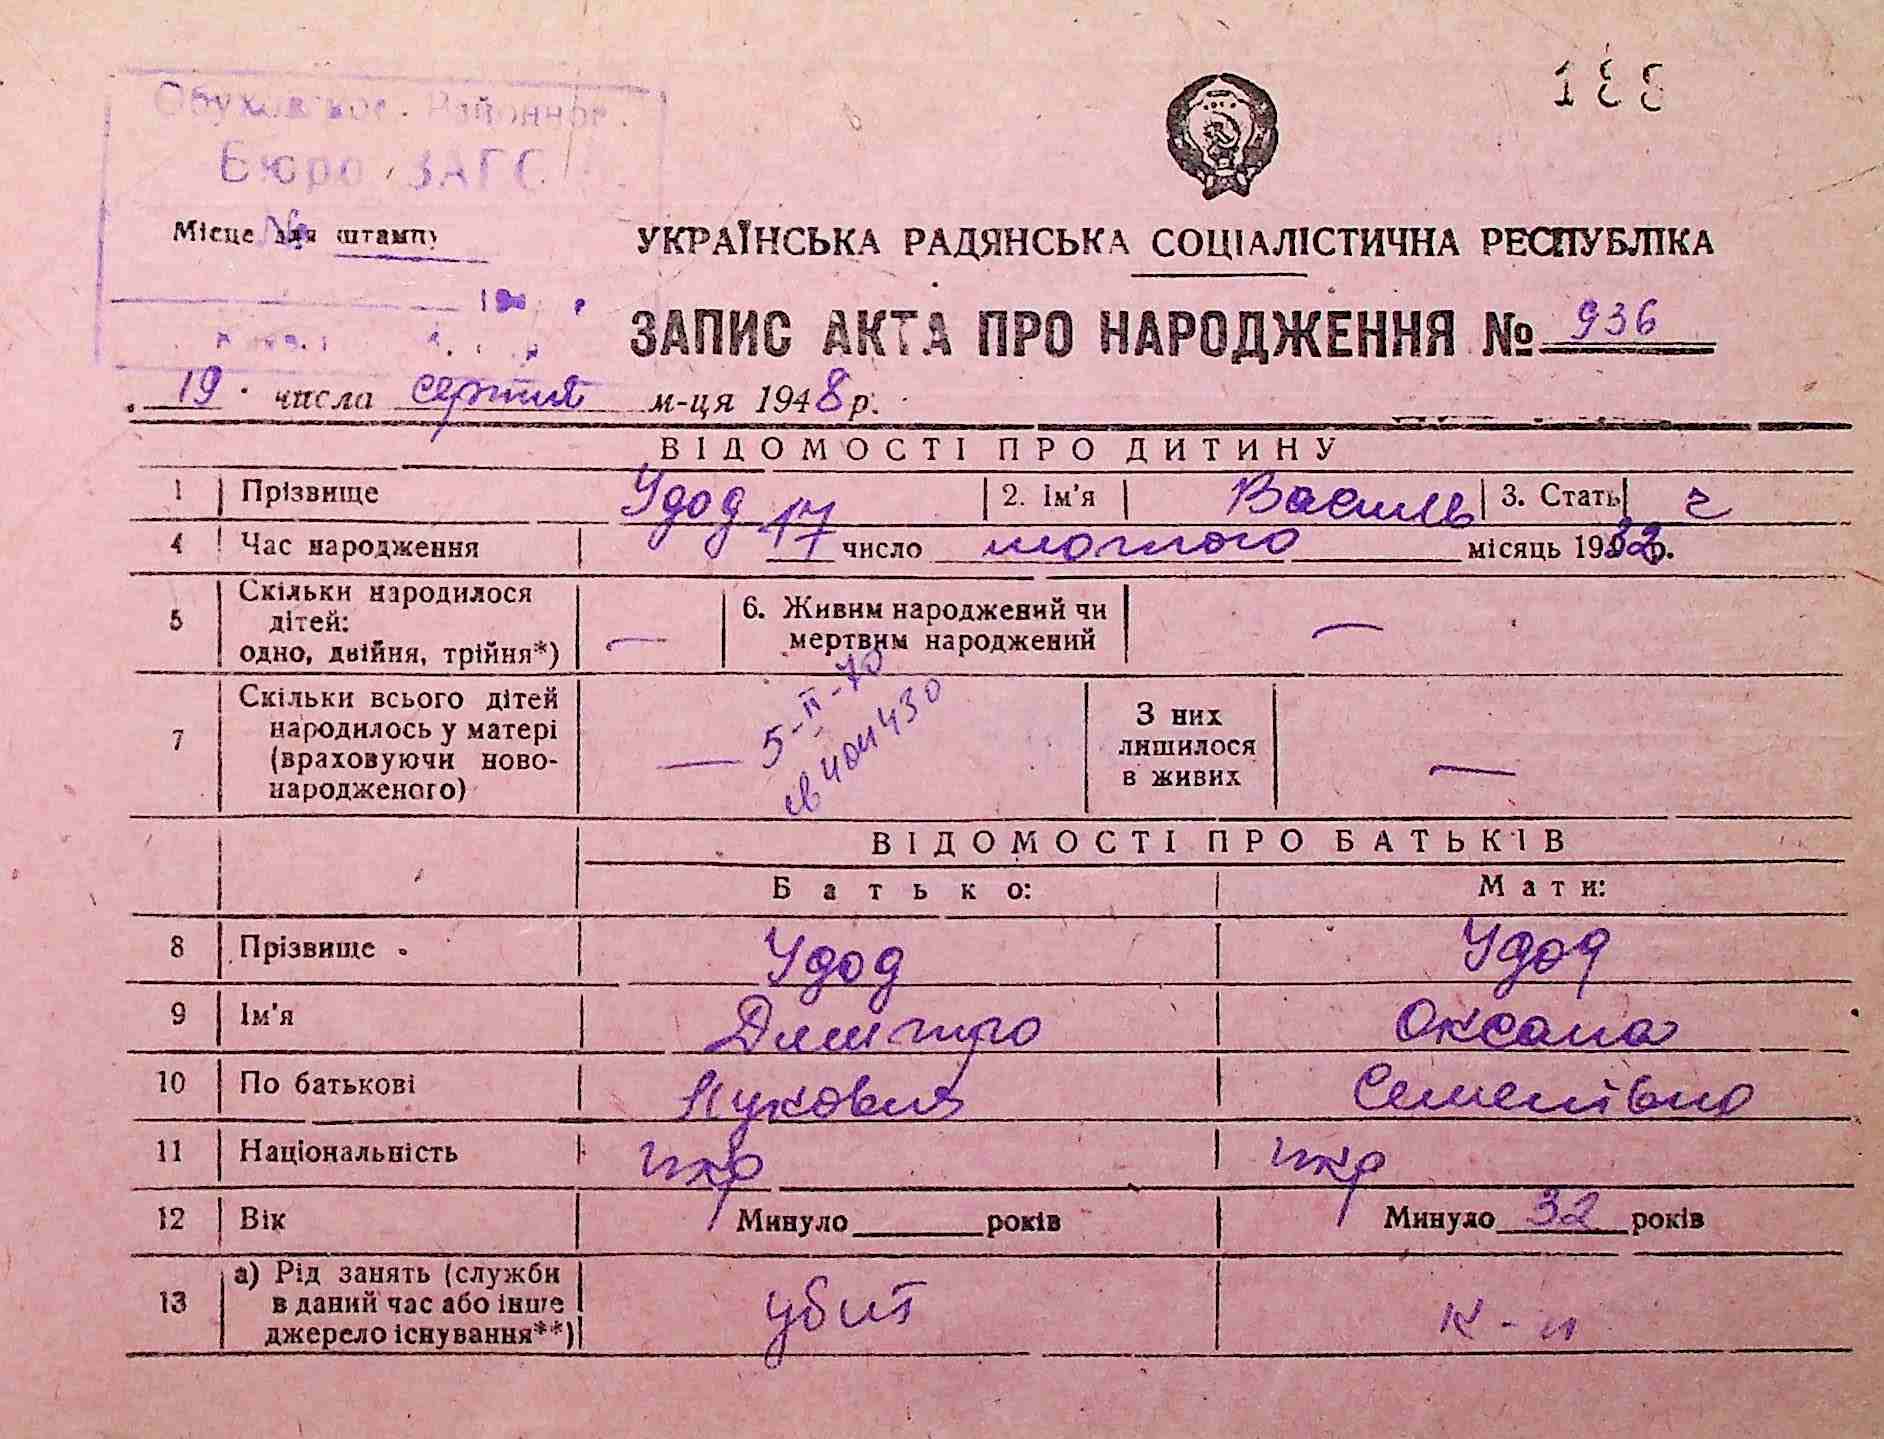 188
Обуховское Районное
Бюро ЗАГС
Місце для штампу
УКРАЇНСЬКА РАДЯНСЬКА СОЦІАЛІСТИЧНА РЕСПУБЛІКА
ЗАПИС АКТА ПРО НАРОДЖЕННЯ № 936
19 числа серпня м-ця 1948 р.
ВІДОМОСТІ ПРО ДИТИНУ
1 Прізвище Удод 2. Ім'я Василь 3. Стать ч
4 Час народження 17 число лютого місяць 1932 р.
5 Скільки народилося дітей: одно, двійня, трійня*) — 6. Живим народжений чи мертвим народжений —
7 Скільки всього дітей народилось у матері (враховуючи ново-народженого) — З них лишилося в живих —
5-II-70
ВІДОМОСТІ ПРО БАТЬКІВ
Батько: Мати:
8 Прізвище Удод Удод
9 Ім'я Дмитро Оксана
10 По батькові Лукович Семенівна
11 Національність укр укр
12 Вік Минуло років Минуло 32 років
13 а) Рід занять (служби в даний час або інше джерело існування**) убит к-ця